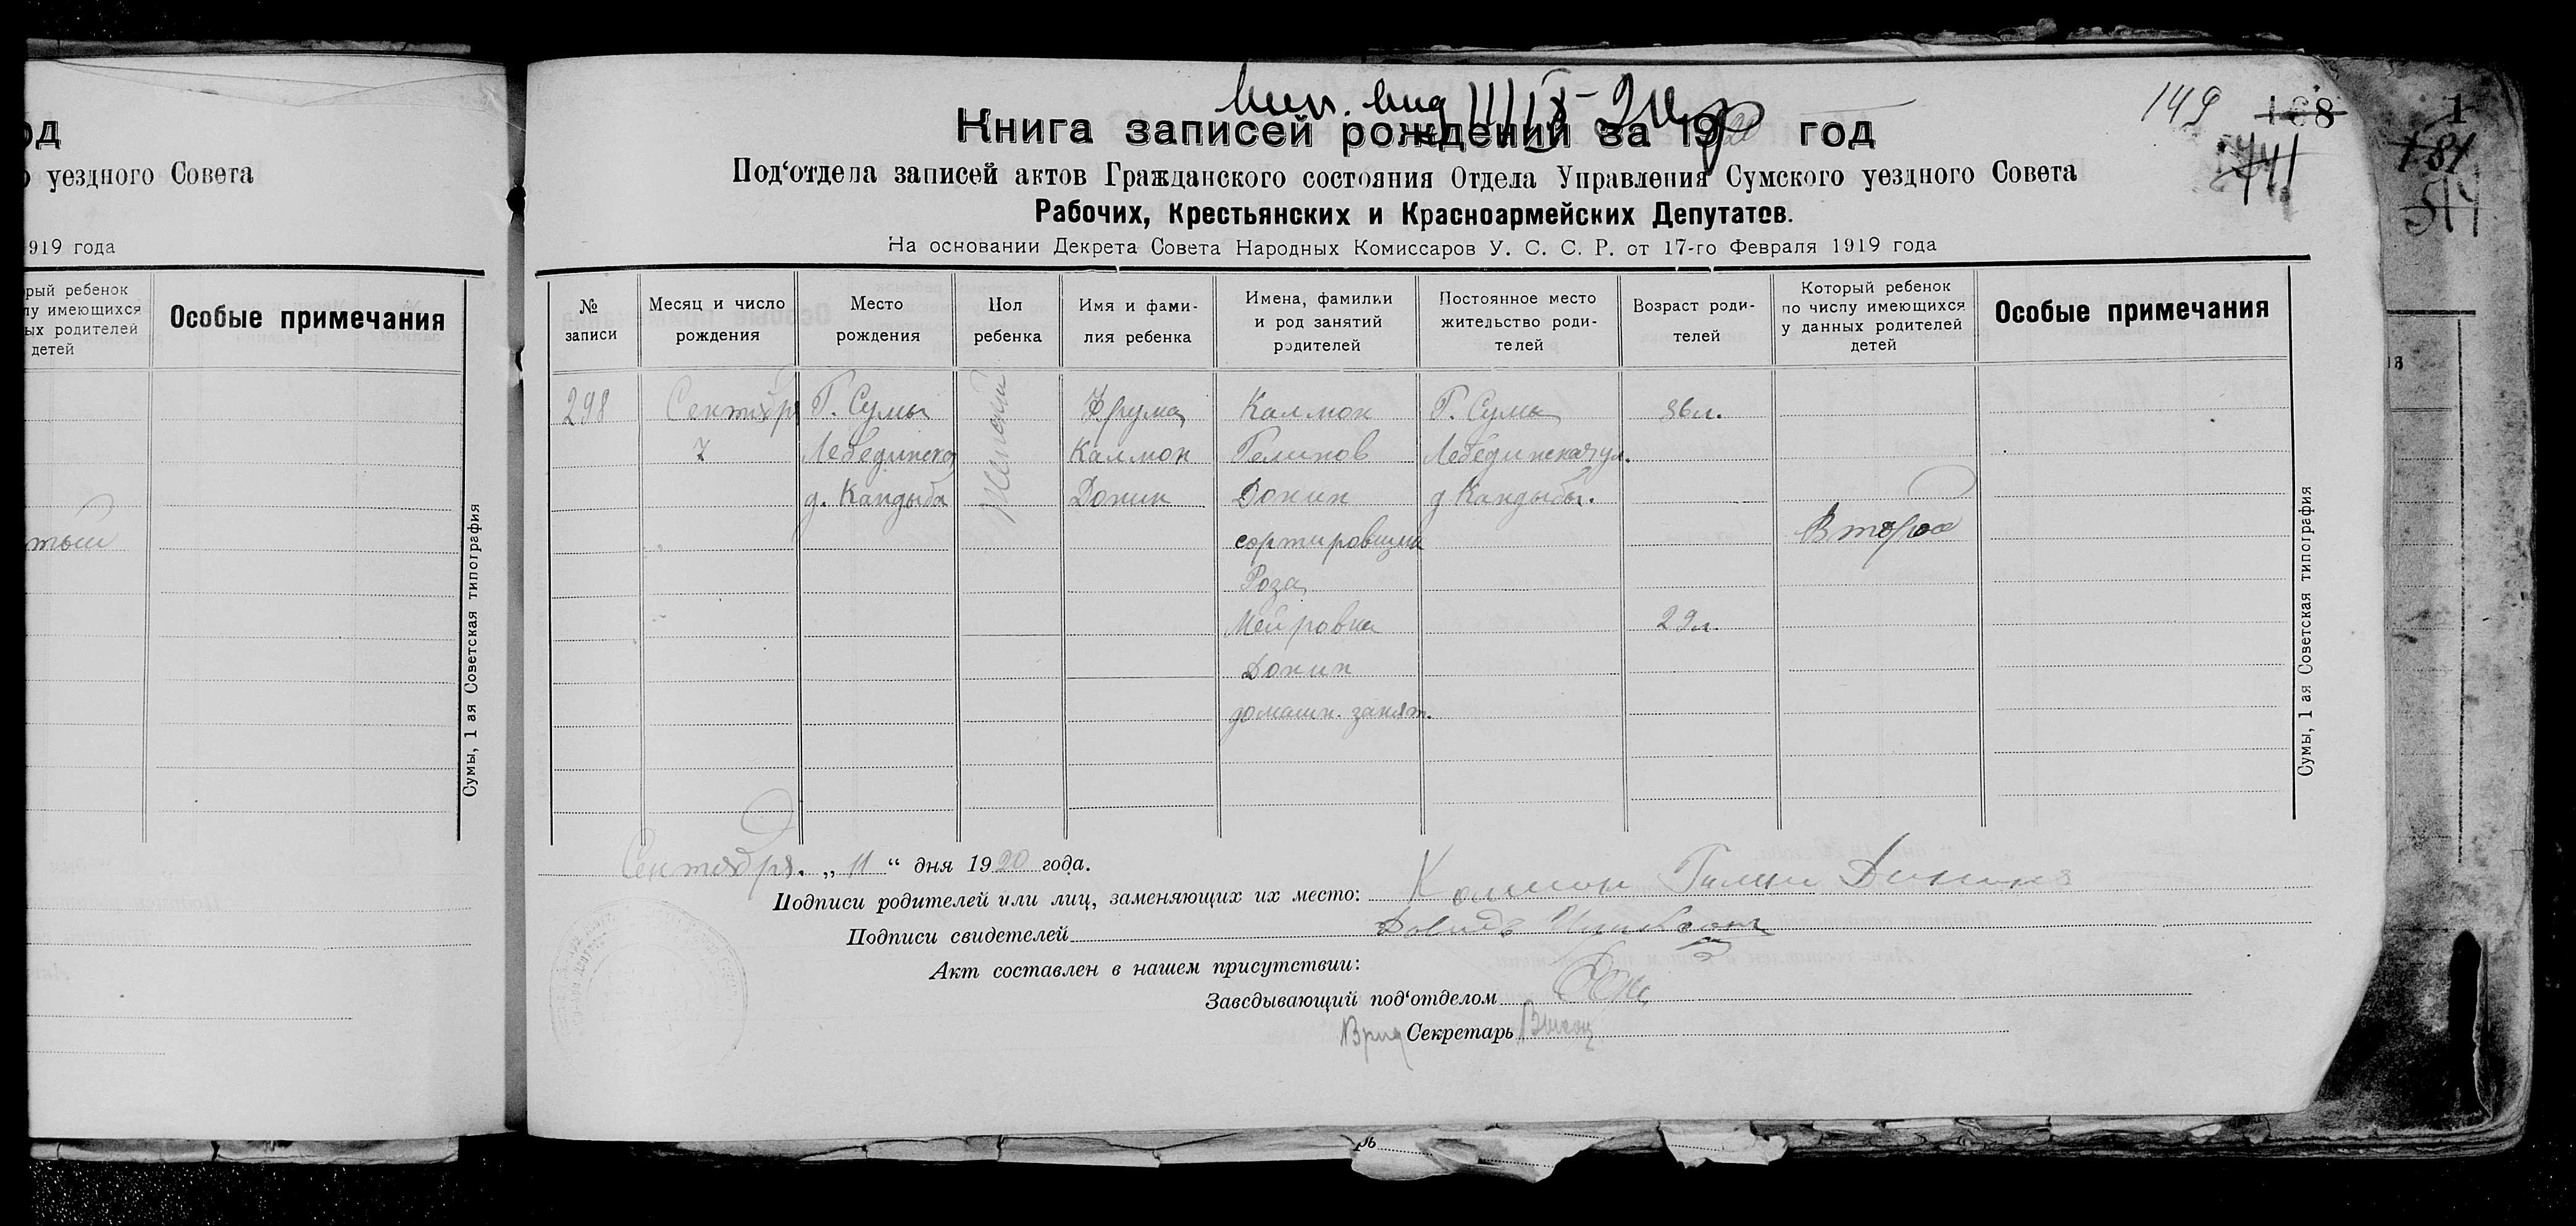 од
уездного Совета
919 года
рый ребенок
лу имеющихся
ых родителей
детей
Особые примечания
тый
Сумы, 1 ая Советская типография
149 168
Книга записей рождений за 1920 год
Под‘отдела записей актов Гражданского состояния Отдела Управления Сумского уездного Совета
Рабочих, Крестьянских и Красноармейских Депутатов.
На основании Декрета Совета Народных Комиссаров У. С. С. Р. от 17-го Февраля 1919 года
№ записи
Месяц и число рождения
Место рождения
Пол ребенка
Имя и фами-
лия ребенка
Имена, фамилии
и род занятий
родителей
Постоянное место
жительство роди-
телей
Возраст роди-
телей
Который ребенок
по числу имеющихся
у данных родителей
детей
Особые примечания
298 Сентябр Г. Сумы женский Фрума Калмон Г. Сумы 36л.
7 Лебединская Калмон Гелинов Лебединская ул.
д. Кандыба Донин Донин д Кандыбы.
сортировщик Второй
Роза
Мейровна 29л.
Донин
домашн. занят.
Сумы, 1 ая Советская типография
Сентября. „ 11 “ дня 1920 года.
Подписи родителей или лиц, заменяющих их место: Калмон
Подписи свидетелей
Акт составлен в нашем присутствии:
Заведывающий под‘отделом
Врид Секретарь
1
181